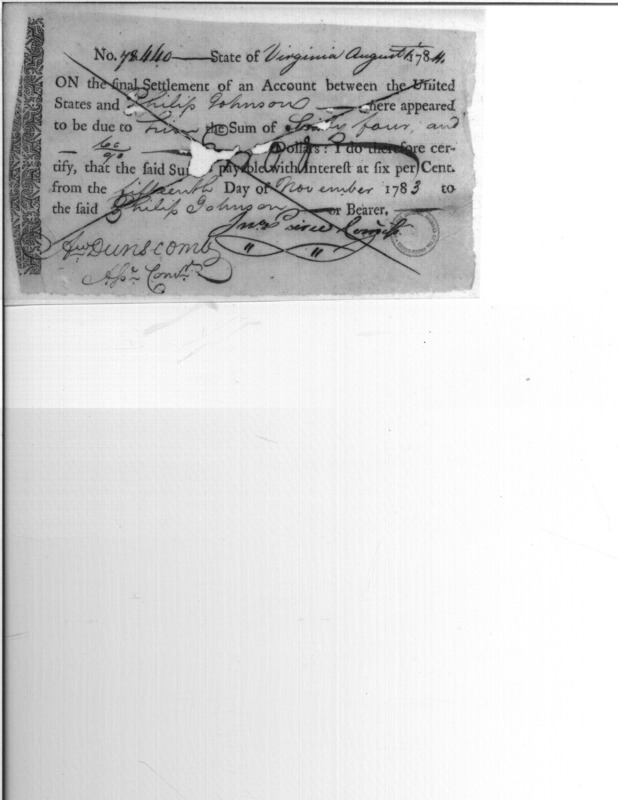 No. 78440 State of Virginia August 1st 1784.
ON the final Settlement of an Account between the United
States and Philip Johnson there appeared
to be due to him the Sum of four, and
60/90 Dollars: I do therefore cer-
tify, that the said Sum payable with Interest at six per Cent.
from the fifteenth Day of November 1783 to
the said Philip Johnson or Bearer.
Jno. Pierce Commissr.
Aw. DUNSCOMB
Asst. Commr.